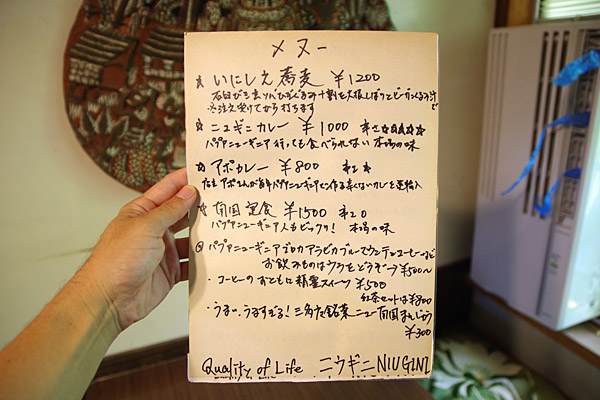 メヌー
☆ いにしえ蕎麦 ¥1200
石臼びき玄ソバひきぐるみ十割を大根しぼりとピーナっくるみ汁で
※注文受けてから打ちます
☆ ニューギニカレー ¥1000 辛さ☆☆☆☆☆
パプアニューギニア行っても食べられない 本場の味
☆ アポカレー ¥800 辛さ☆
店主アポさんが毎年パプアニューギニアで作る辛くないカレーを逆輸入
☆ 有国定食 ¥1500 辛20
パプアニューギニア人もビックリ! 本場の味
◎ パプアニューギニアゴロカアラビカブルーマウンテンコーヒーなど
お飲みものはウラをどうぞ→ ¥500〜
・コーヒーのおともに精霊スイーツ ¥500
紅茶セットは¥800
・うまい、うますぎる! 三角た銘菓ニュー有国まんじゅう
¥300
Quality of Life ニウギニ NIUGINI